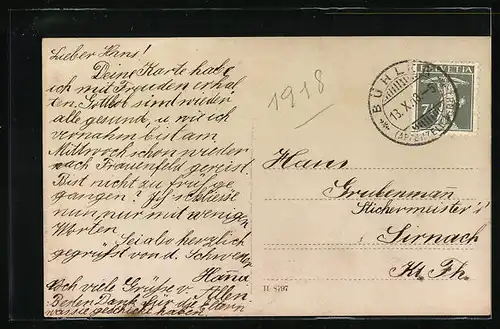 Lieber Hans!
Deine Karte habe
ich mit Freuden erhal
ten. Gottlob sind wieder
alle gesund, u. wie ich
vernahm bist am
Mittwoch schon wieder
nach Frauenfeld gereist.
Bist nicht zu früh ge
gangen? Ich schliesse
nun nur mit wenigen
Worten.
Sei also herzlich
gegrüsst von d. Schwester
Hanna
Noch viele Grüsse v. Allen
Besten Dank für die Eltern
was sie geschickt haben.
1918
BÜHLER
13.X.18
(APPENZELL)
HELVETIA
7½
Hans
Grubenmann
Stickermeister's!
Sirnach
Kt. Th.
H. 8797